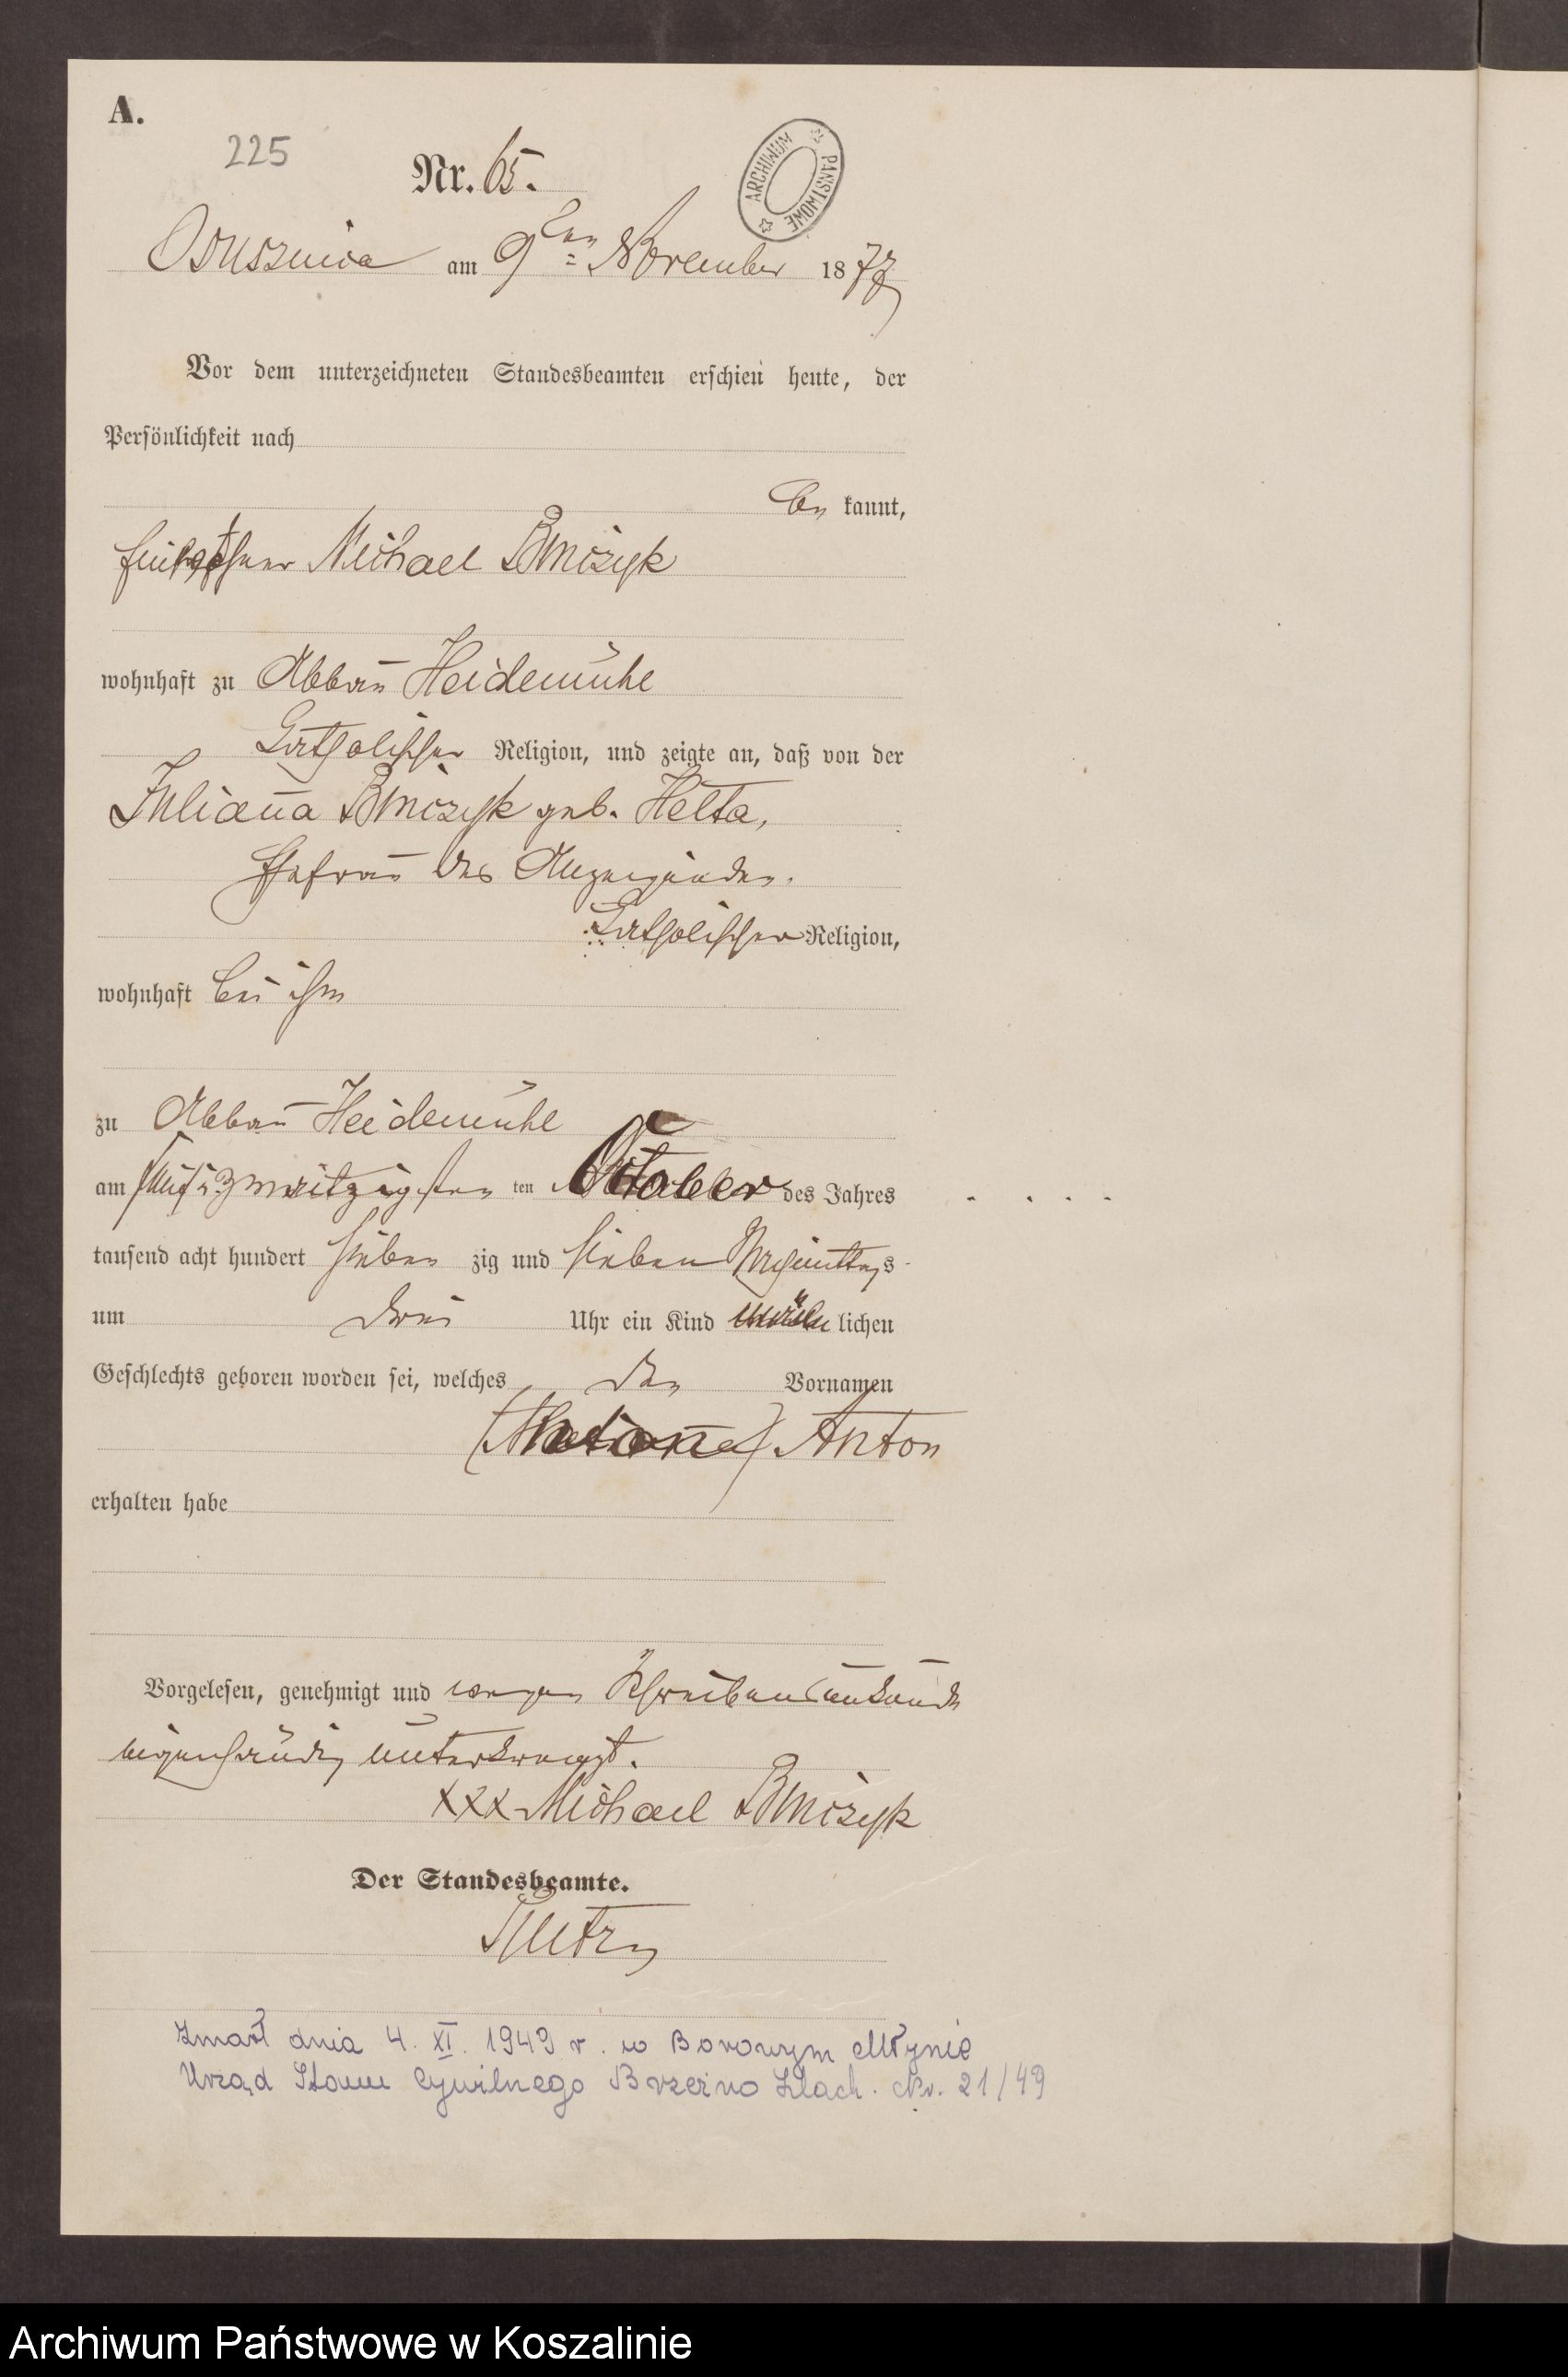 A.
225
Nr. 65.
ARCHIWUM PAŃSTWOWE
Osuszniça am 9ten November 1877
Vor dem unterzeichneten Standesbeamten erschien heute, der
Persönlichkeit nach
be kannt,
Michael
wohnhaft zu Abbau Heidemühl
katholischer Religion, und zeigte an, daß von der
Julianna geb. Helta,
Ehefrau des Anzeigenden.
katholischer Religion,
wohnhaft bei ihm
zu Abbau Heidemühl
am fünf u zwanzigsten ten October des Jahres
tausend acht hundert sieben zig und sieben Nachmittags
um drei Uhr ein Kind männ lichen
Geschlechts geboren worden sei, welches den Vornamen
Anton
erhalten habe
Vorgelesen, genehmigt und wegen Schreibensunkunde
eigenhändig unterkreuzt.
xxx Michael
Der Standesbeamte.
Zmarł dnia 4. XI. 1949 r. w Borowym Młynie
Urząd Stanu Cywilnego Brzeźno Szlach. Nr. 21/49
Archiwum Państwowe w Koszalinie